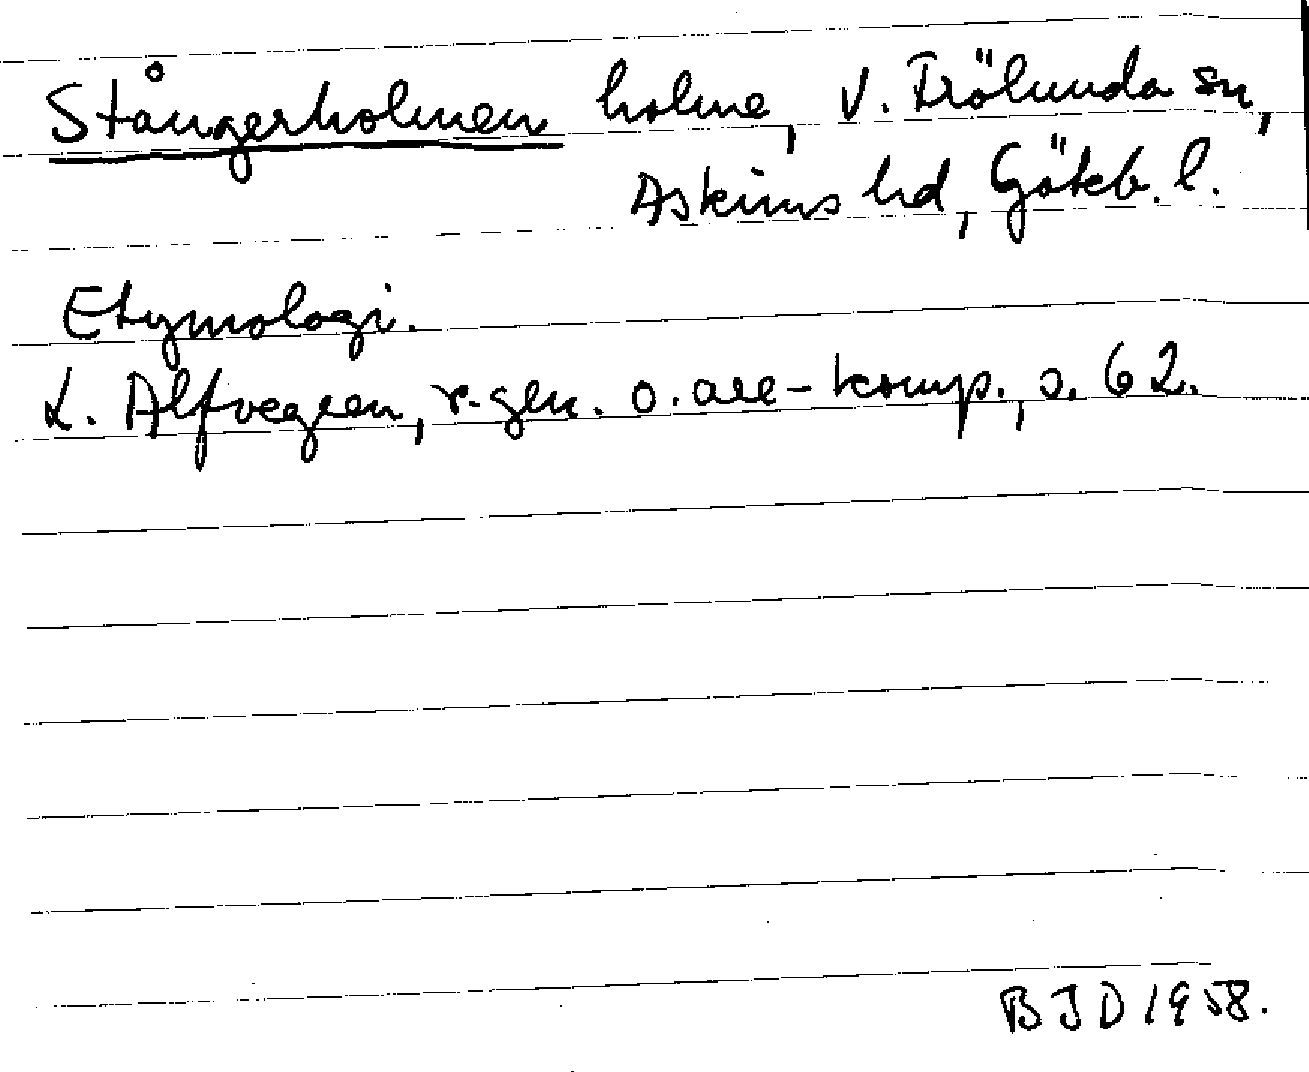 Stångerholmen holme, V. Frölunda sn,
Askims hd, Göteb. l.
Etymologi.
L. Alfvegren, r-gen. o. are-komp., s. 62.
BJD 1958.